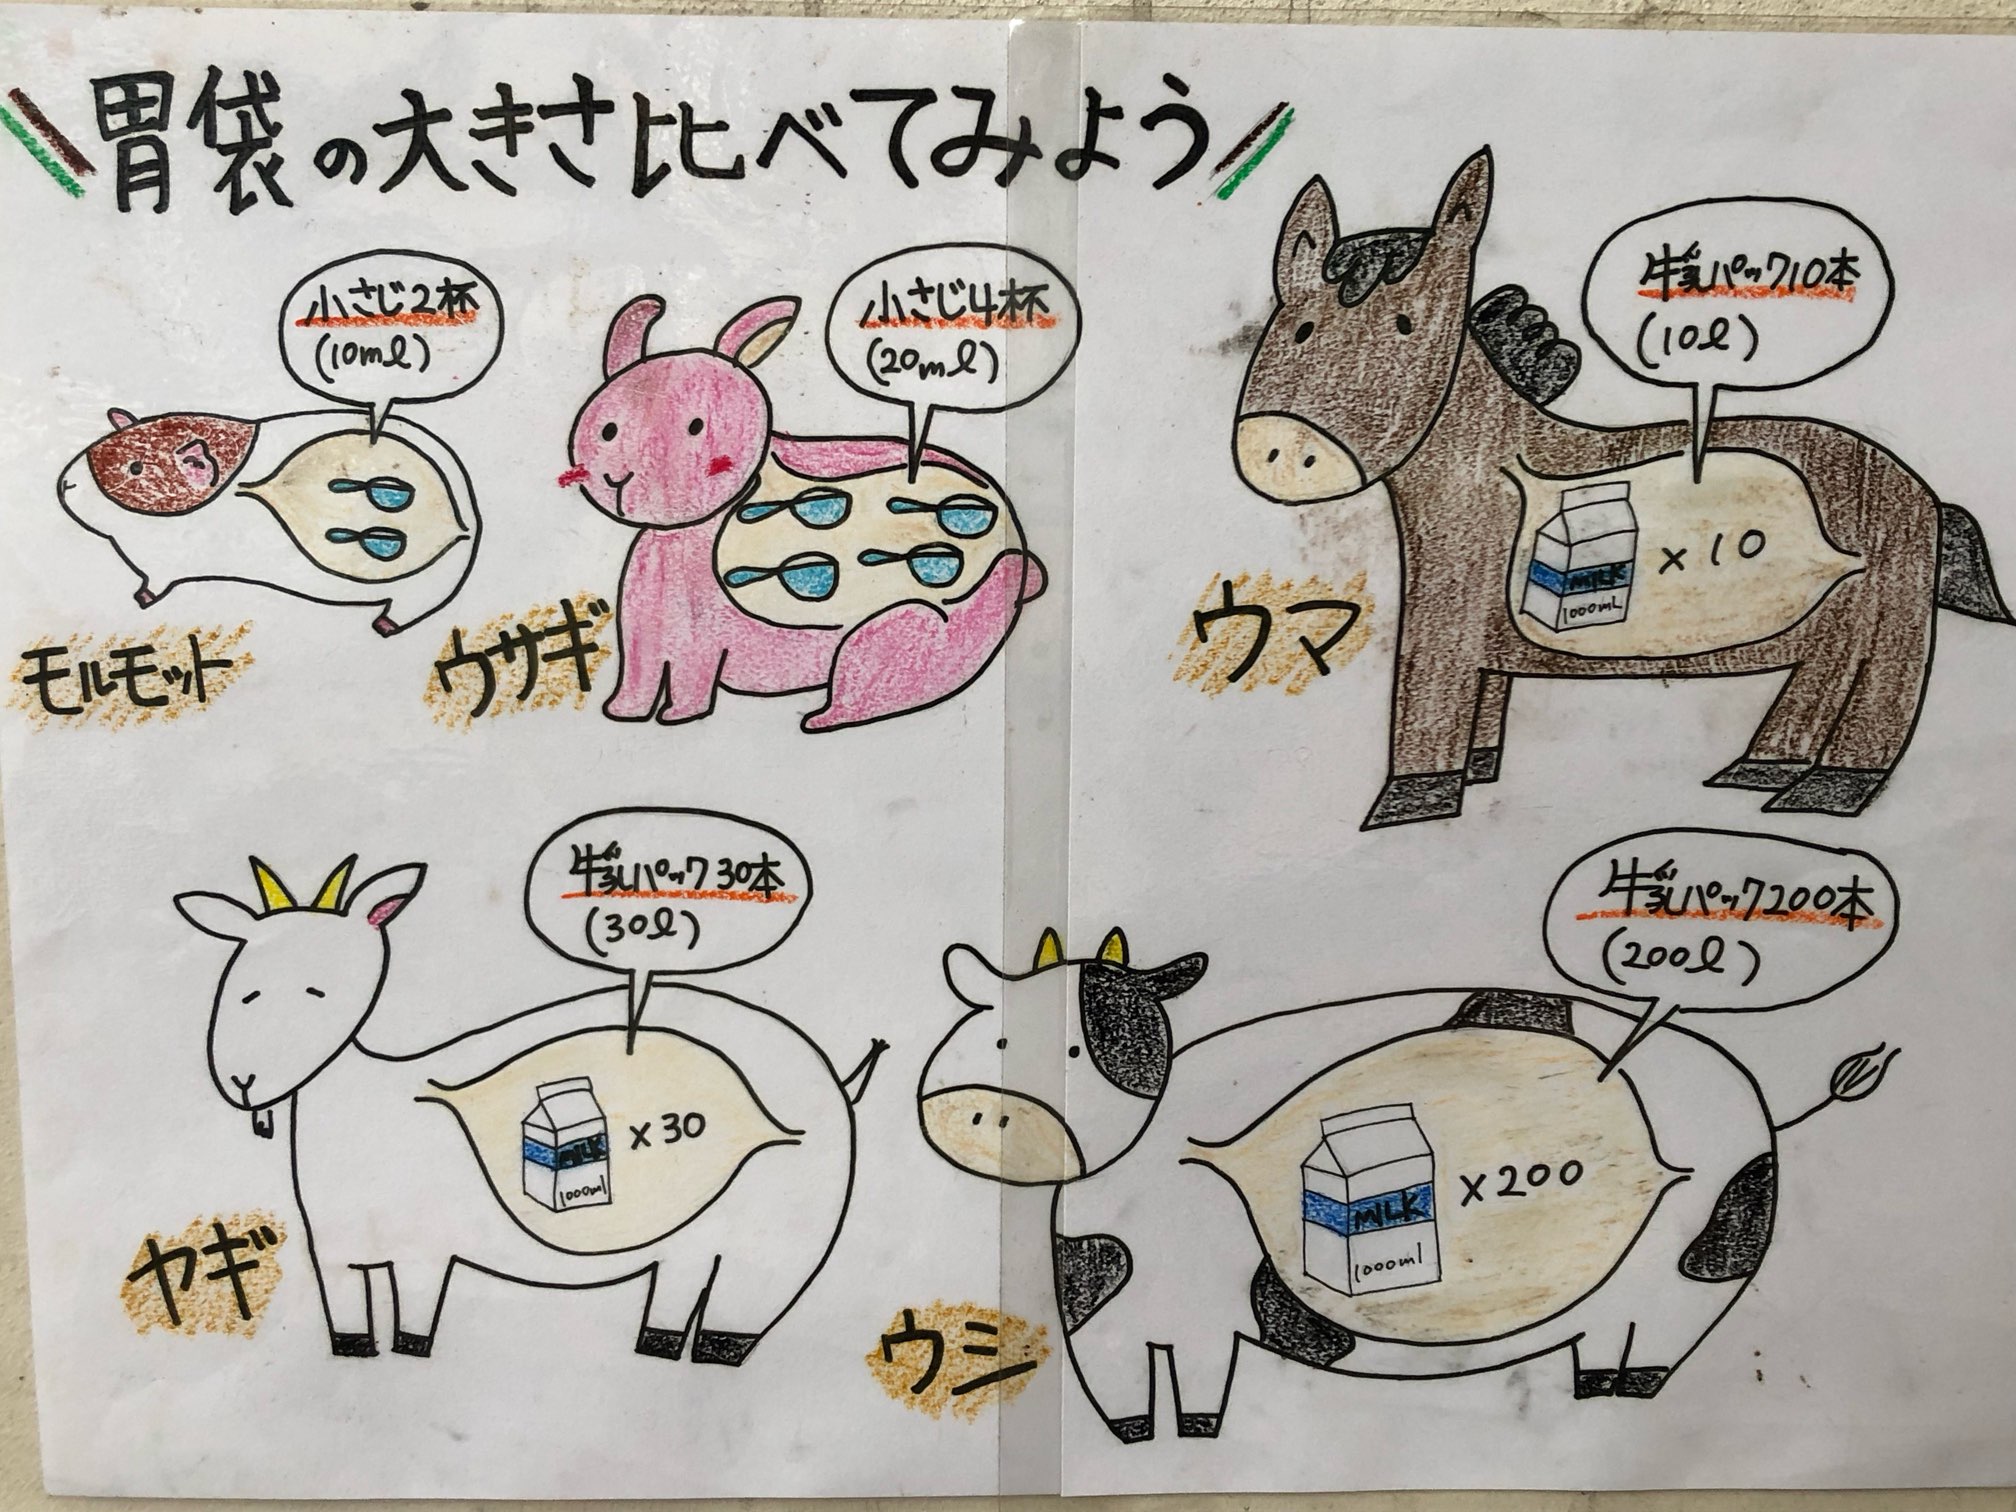 胃袋の大きさ比べてみよう
小さじ2杯
(10ml)
モルモット
小さじ4杯
(20ml)
ウサギ
牛乳パック10本
(10l)
MILK
1000mL
×10
ウマ
牛乳パック30本
(30l)
MILK
1000ml
×30
ヤギ
牛乳パック200本
(200l)
MILK
1000ml
×200
ウシ